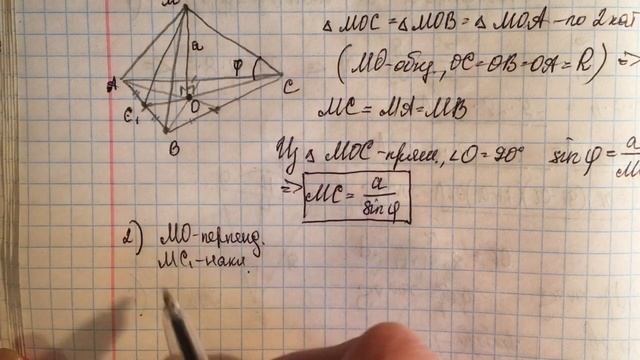 M
a
φ
A
C
O
C₁
B
△MOC = △MOB = △MOA - по 2 кат
(MO-общ, OC=OB=OA=R) ⇒
MC = MA = MB
Из △MOC-прям., ∠O=90° sin φ = a/M
⇒ MC = a/sin φ
2) MO-перпенд.
MC₁-накл.